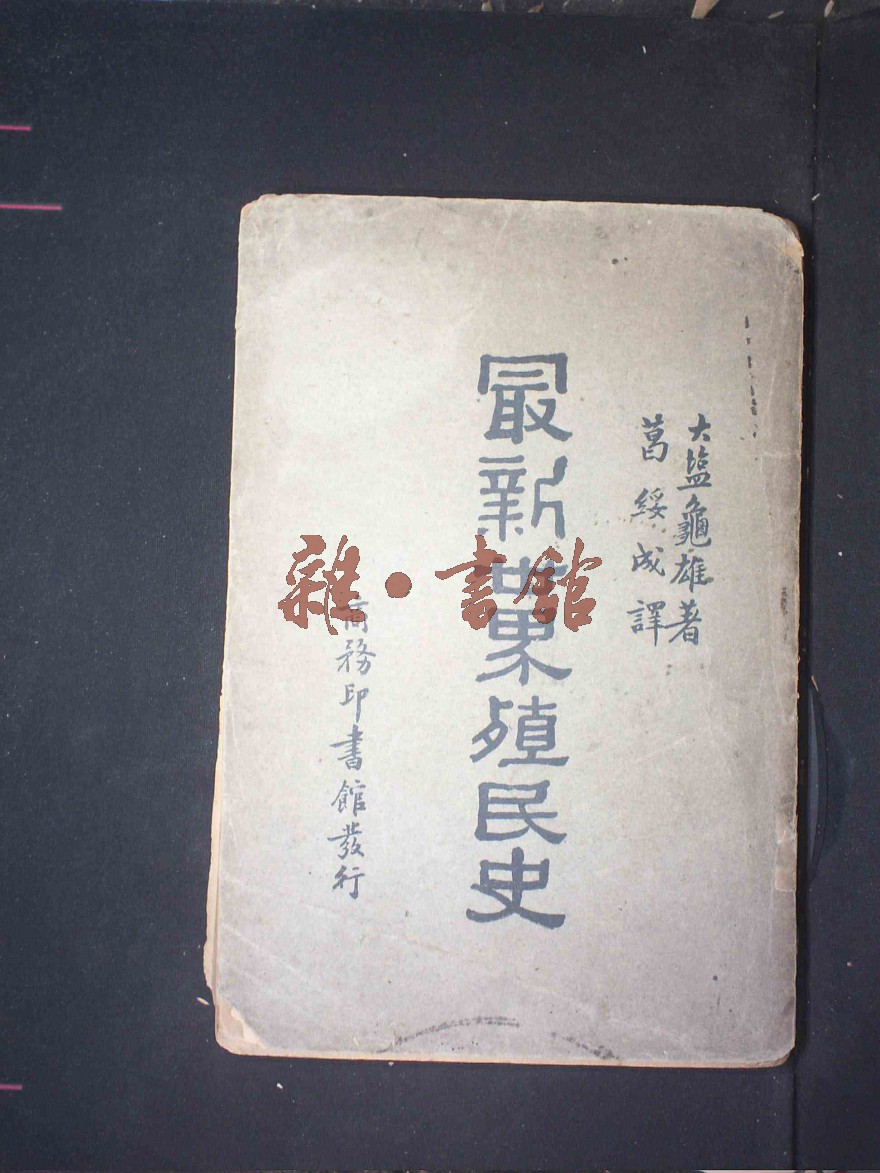 大塩龜雄著
葛綏成譯
最新世界殖民史
商務印書館發行
雜·書館